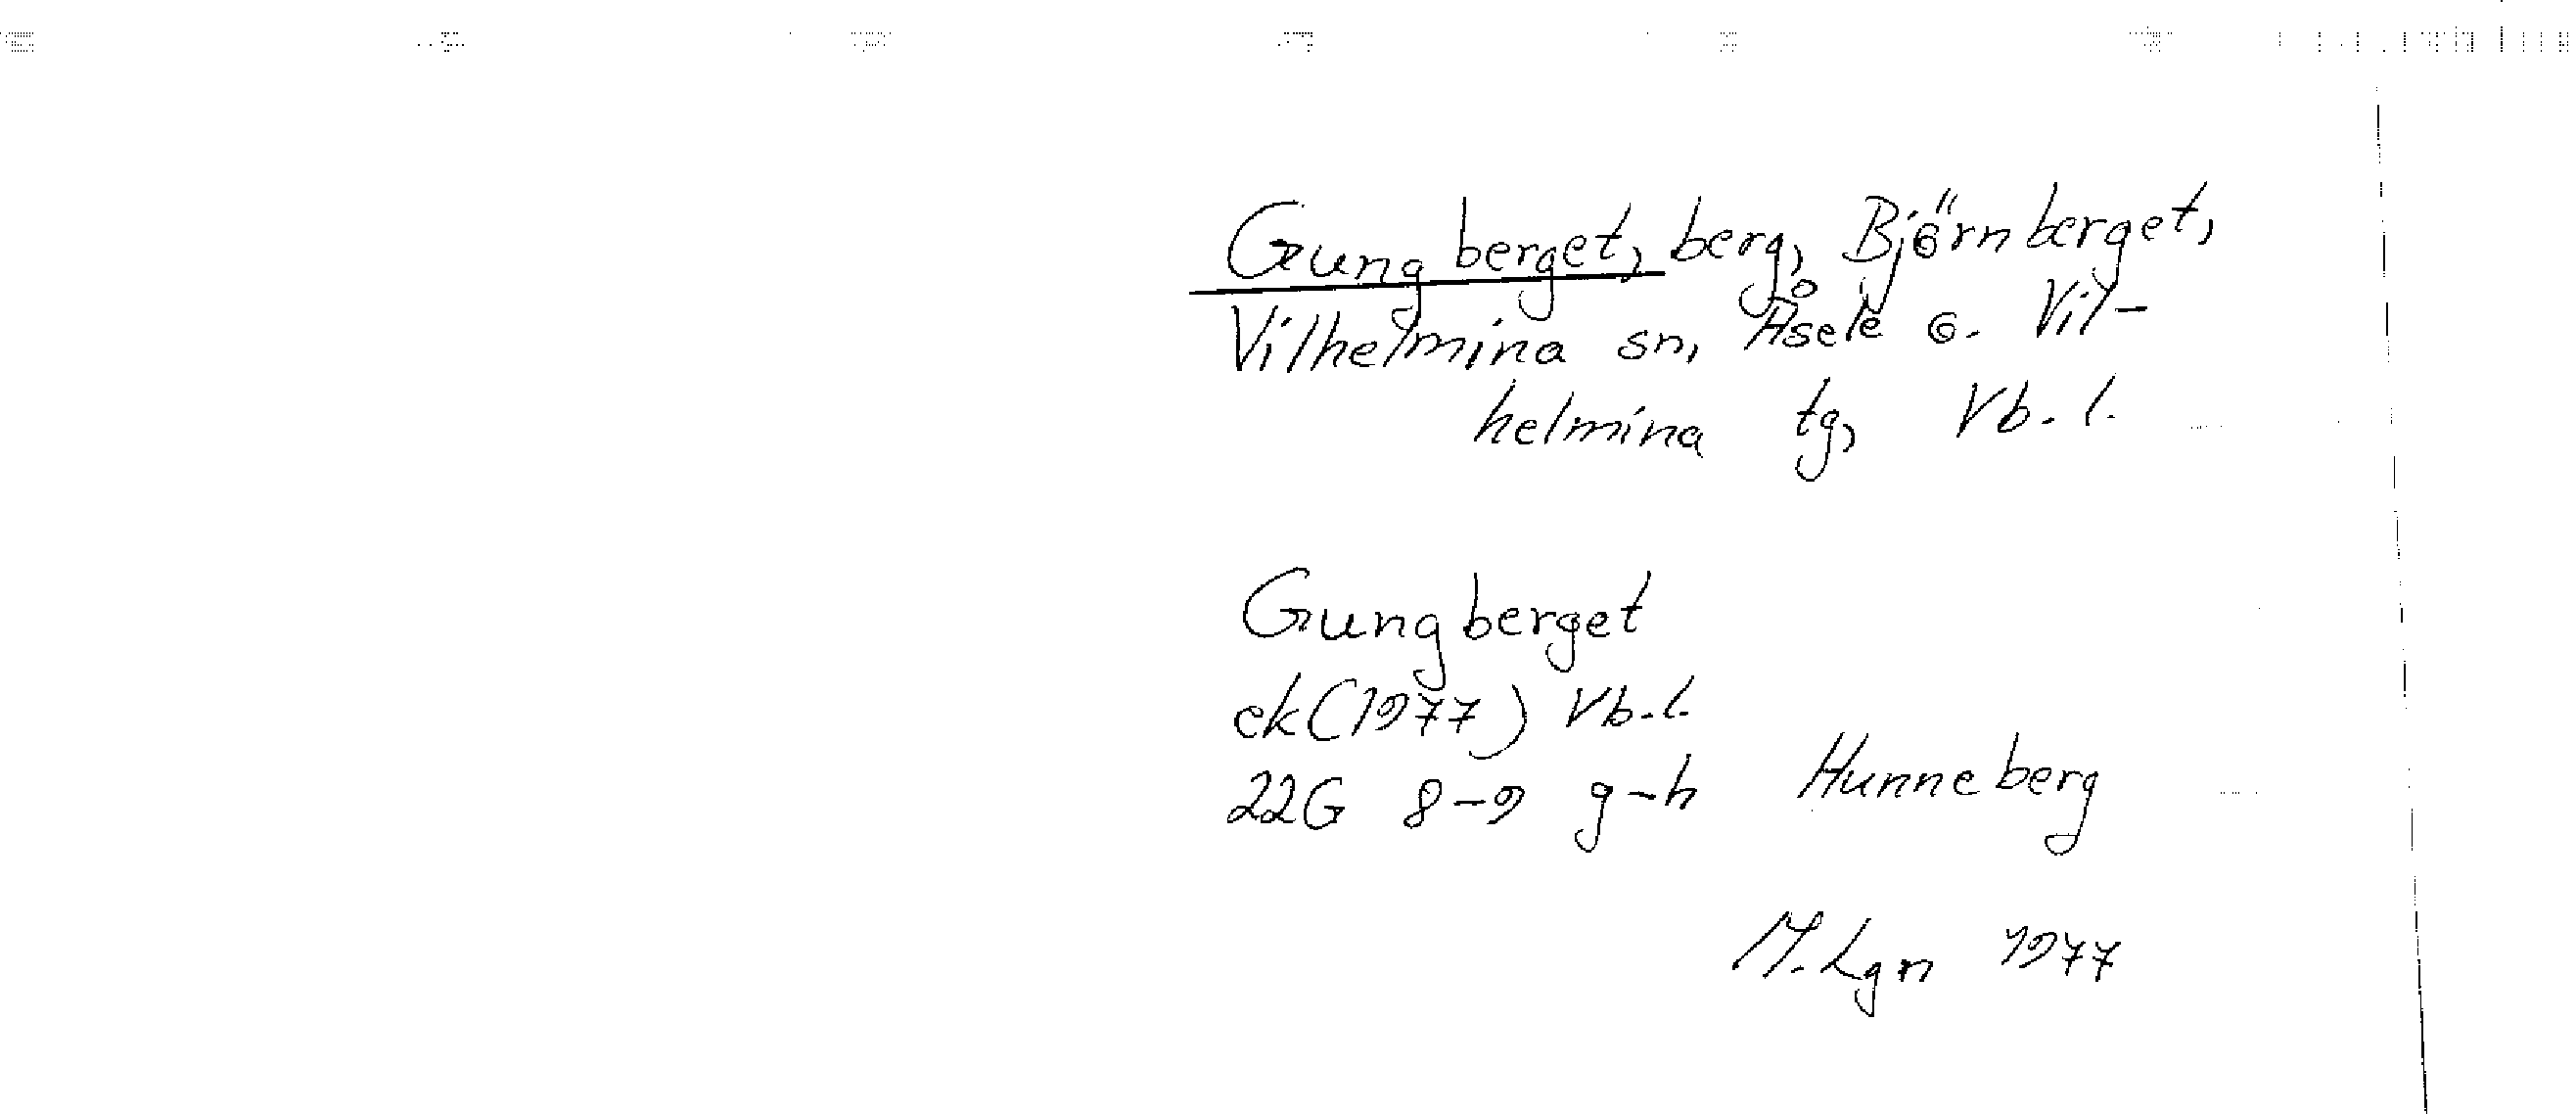 Gungberget, berg, Björnberget,
Vilhelmina sn, Åsele o. Vil-
helmina tg, Vb. l.
Gungberget
ek (1977) Vb. l.
22G 8-9 g-h Hunneberg
M. Lgn 1977